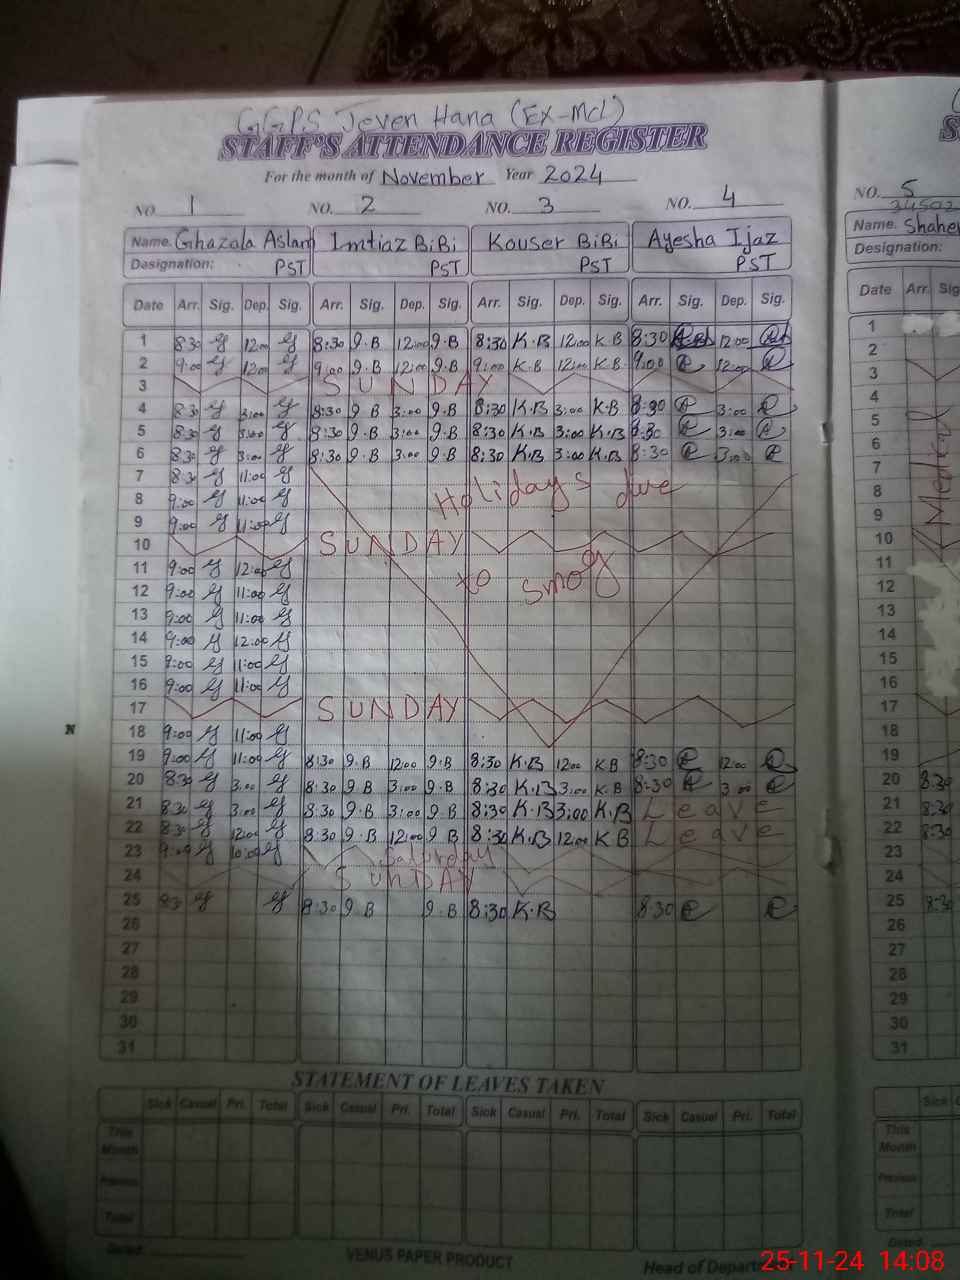 GGPS Jeven Hana (EX-MCL)
STAFF'S ATTENDANCE REGISTER
For the month of November Year 2024
NO. 1 NO. 2 NO. 3 NO. 4 NO. 5
Name. Ghazala Aslam Imtiaz BiBi Kouser BiBi Ayesha Ijaz Name.
Designation: PST PST PST PST Designation:
Date Arr. Sig. Dep. Sig. Arr. Sig. Dep. Sig. Arr. Sig. Dep. Sig. Arr. Sig. Dep. Sig. Date Arr.
1 8:30 12:00 8:30 9.B 12:00 9.B 8:30 K.B 12:00 K B 8:30 12:00 1
2 9:00 12:00 9:00 9.B 12:00 9.B 9:00 K.B 12:00 K B 9:00 12:00 2
3 SUNDAY 3
4 8:30 3:00 8:30 9 B 3:00 9.B 8:30 K.B 3:00 K.B 8:30 3:00 4
5 8:30 3:00 8:30 9.B 3:00 9.B 8:30 K.B 3:00 K.B 8:30 3:00 5
6 8:30 3:00 8:30 9.B 3:00 9.B 8:30 K.B 3:00 K.B 8:30 3:00 6
7 8:30 11:00 7
8 9:00 11:00 Holidays due 8
9 9:00 11:00 9
10 SUNDAY 10
11 9:00 12:00 to smog 11
12 9:00 11:00 12
13 9:00 11:00 13
14 9:00 12:00 14
15 9:00 11:00 15
16 9:00 11:00 16
17 SUNDAY 17
18 9:00 11:00 18
19 9:00 11:00 8:30 9.B 12:00 9.B 8:30 K.B 12:00 K B 8:30 12:00 19
20 8:30 3:00 8:30 9.B 3:00 9.B 8:30 K.B 3:00 K.B 8:30 3:00 20 8:30
21 8:30 3:00 8:30 9.B 3:00 9.B 8:30 K.B 3:00 K.B Leave 21 8:30
22 8:30 12:00 8:30 9.B 12:00 9 B 8:30 K.B 12:00 K B Leave 22 8:30
23 9:00 10:00 Saturday 23
24 SUNDAY 24
25 8:30 8:30 9 B 9.B 8:30 K.B 8:30 25 8:30
26 26
27 27
28 28
29 29
30 30
31 31
STATEMENT OF LEAVES TAKEN
Sick Casual Pri. Total Sick Casual Pri. Total Sick Casual Pri. Total Sick Casual Pri. Total Sick
This Month This Month
Previous Previous
Total Total
Dated Dated
VENUS PAPER PRODUCT Head of
25-11-24 14:08